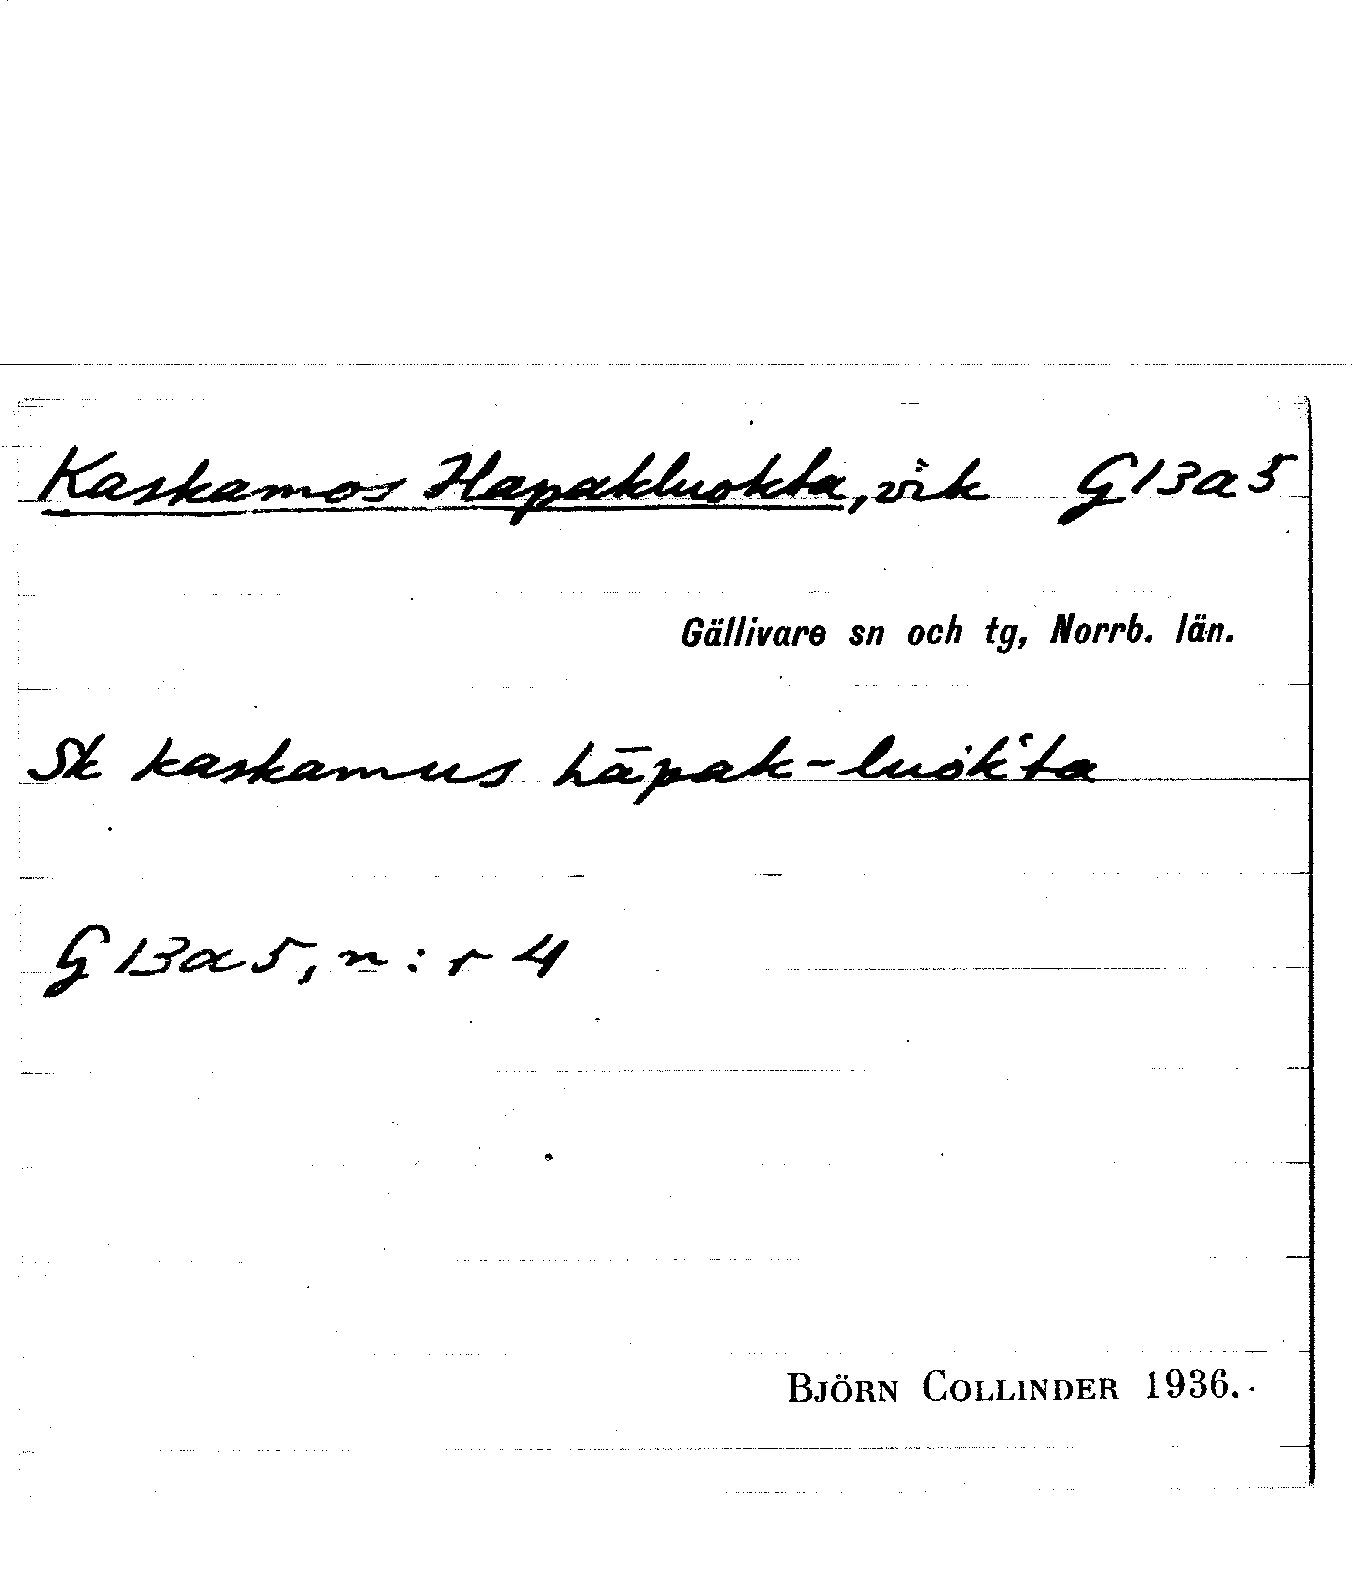 Kaskamos Hapakluokta, vik G13a5
Gällivare sn och tg, Norrb. län.
Sk kaskamus hāpak-luòk‛ta
G13a5, n:r 4
BJÖRN COLLINDER 1936.